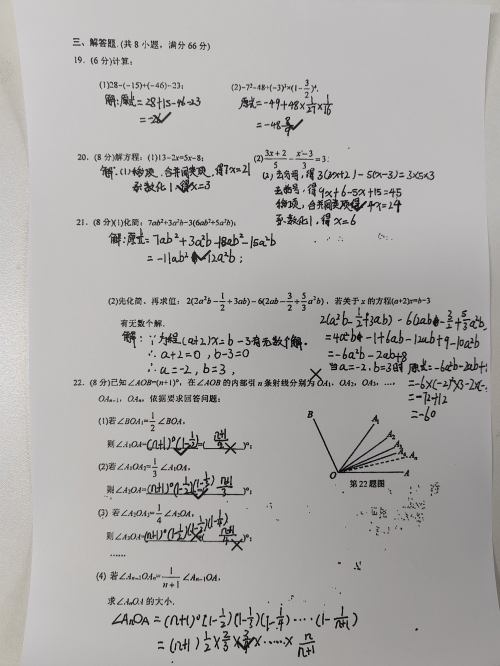 三、解答题.(共8小题，满分66分)
19.(6分)计算：
(1)28-(-15)+(-46)-23; (2)-7²-48÷(-3)³×(1-3/2)⁴.
解:原式=28+15-46-23 原式=-49+48×1/27×1/16
=-26 =-48 8/9
20.(8分)解方程：(1)13-2x=5x-8; (2)(3x+2)/5-(x-3)/3=3;
解:(1)移项、合并同类项,得7x=21 (2)去分母,得3(3x+2)-5(x-3)=3×5×3
系数化1,得x=3 去括号,得9x+6-5x+15=45
移项,合并同类项得4x=24
系数化1,得x=6
21.(8分)(1)化简：7ab²+3a²b-3(6ab²+5a²b);
解:原式=7ab²+3a²b-18ab²-15a²b
=-11ab²-12a²b;
(2)先化简，再求值：2(2a²b-1/2+3ab)-6(2ab-3/2+5/3a²b)，若关于x的方程(a+2)x=b-3
有无数个解.
解:∵方程(a+2)x=b-3有无数个解.
∴a+2=0,b-3=0
∴a=-2,b=3,
=4a²b-1+6ab-12ab+9-10a²b
=-6a²b-2ab+8
当a=-2,b=3时 原式=-6a²b-2ab+
=-6×(-2)²×3-2×
=-72+12
=-60
22.(8分)已知∠AOB=(n+1)°，在∠AOB的内部引n条射线分别为OA₁，OA₂，OA₃，…，
OAₙ₋₁，OAₙ，依据要求回答问题：
(1)若∠BOA₁=1/2∠BOA,
则∠A₁OA=(n+1)°(1-1/2)=( n+1/2 )°;
(2)若∠A₁OA₂=1/3∠A₁OA,
则∠A₂OA=(n+1)°(1-1/2)(1-1/3) n+1/3 )°;
(3) 若∠A₂OA₃=1/4∠A₂OA,
则∠A₃OA=(n+1)°(1-1/2)(1-1/3)(1-1/4) n+1/4 )°;
……
(4) 若∠Aₙ₋₁OAₙ=1/(n+1)∠Aₙ₋₁OA,
求∠AₙOA的大小.
∠AnOA=(n+1)°(1-1/2)(1-1/3)(1-1/4)……(1-1/(n+1))
=(n+1)1/2×2/3×3/4×……×n/(n+1)
B
A₁
A₂
A₃
Aₙ
O
A
第22题图